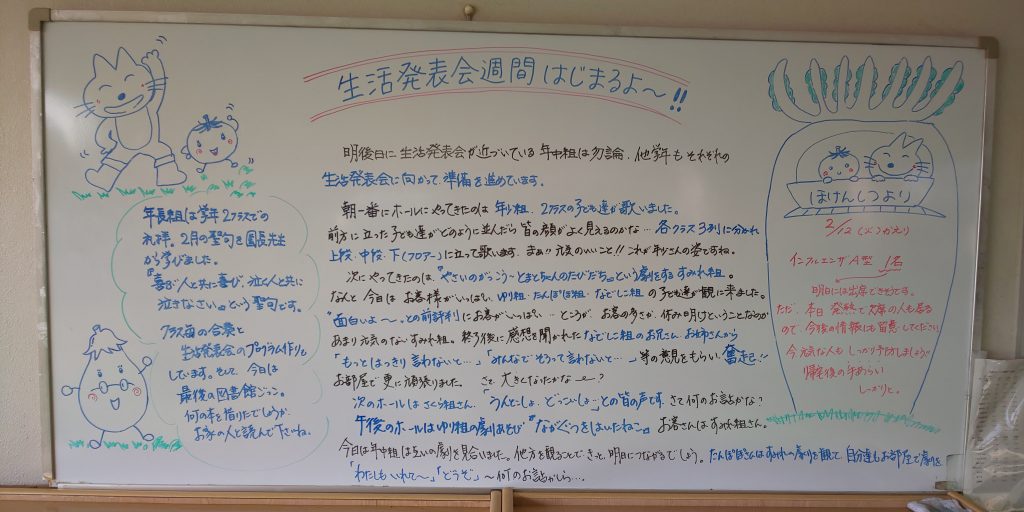 生活発表会週間はじまるよ〜!!
明後日に生活発表会が近づいている年中組は勿論、他学年もそれぞれの
生活発表会に向かって、準備を進めています。
朝一番にホールにやってきたのは年少組、2クラスの子ども達が歌いました。
前方に立った子ども達がどのように並んだら皆の顔がよく見えるのかな…各クラス3列に分かれ
上段・中段・下(フロアー)に立って歌います。まぁっ元気のいいこと!!これが年少さんの姿ですね。
次にやってきたのは、『やさいのがっこう〜とまとちゃんのたびだち』という劇をするすみれ組。
なんと今日はお客様がいっぱい、ゆり組・たんぽぽ組・なでしこ組の子ども達が観に来ました。
"面白いよ〜"との前評判にお客がいっぱい…ところが、お客の多さか、休み明けということなのか
あまり元気のないすみれ組。終了後に感想を聞かれたなでしこ組のお兄さんお姉さんから
「もっとはっきり言わないと…」「みんなでそろって言わないと…」等の意見をもらい奮起!!
お部屋で更に頑張りました。さて大きくなったかな〜?
次のホールはさくら組さん、「うんとこしょ、どっこいしょ」との皆の声です。さて何のお話かな?
午後のホールはゆり組の劇あそび『ながぐつをはいたねこ』 お客さんはすみれ組さん。
今日は年中組は互いの劇を見合いました。他方を観ることできっと、明日につながるでしょう。たんぽぽ組さんはすみれ組の劇を観て自分達もお部屋で劇を
「わたしもいれて〜」「どうぞ」〜何のお話かしら…
年長組は学年2クラスでの
礼拝。2月の聖句を園長先生
から学びました。
『喜ぶ人と共に喜び、泣く人と共に
泣きなさい』という聖句です。
クラス毎の合奏と
生活発表会のプログラム作りと
しています。そして、今日は
最後の図書館ごっこ。
何の本を借りたでしょうか、
お家の人と読んで下さいね。
ほけんしつより
2/12(火)
インフルエンザA型 1名
明日には出席できそうです。
ただ、本日発熱で欠席の人も居る
ので、今後の情報にも留意してください
今元気な人もしっかり予防しましょう
帰宅後の手あらい
しっかりと。